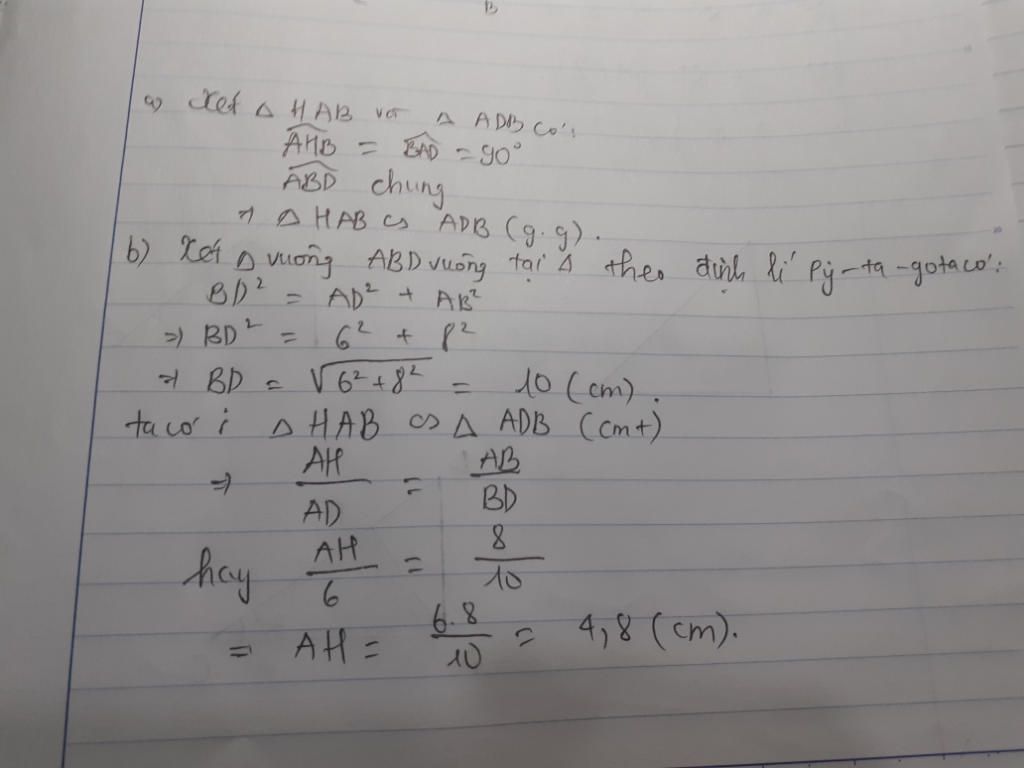 B
a) Xét Δ HAB và Δ ADB có:
AHB = BAD = 90°
ABD chung
=> Δ HAB ∽ ADB (g.g).
b) Xét Δ vuông ABD vuông tại A theo định lí Py-ta-go ta có:
BD² = AD² + AB²
=> BD² = 6² + 8²
=> BD = √6²+8² = 10 (cm).
ta có : Δ HAB ∽ Δ ADB (cmt)
=> AH/AD = AB/BD
hay AH/6 = 8/10
= AH = 6.8/10 = 4,8 (cm).